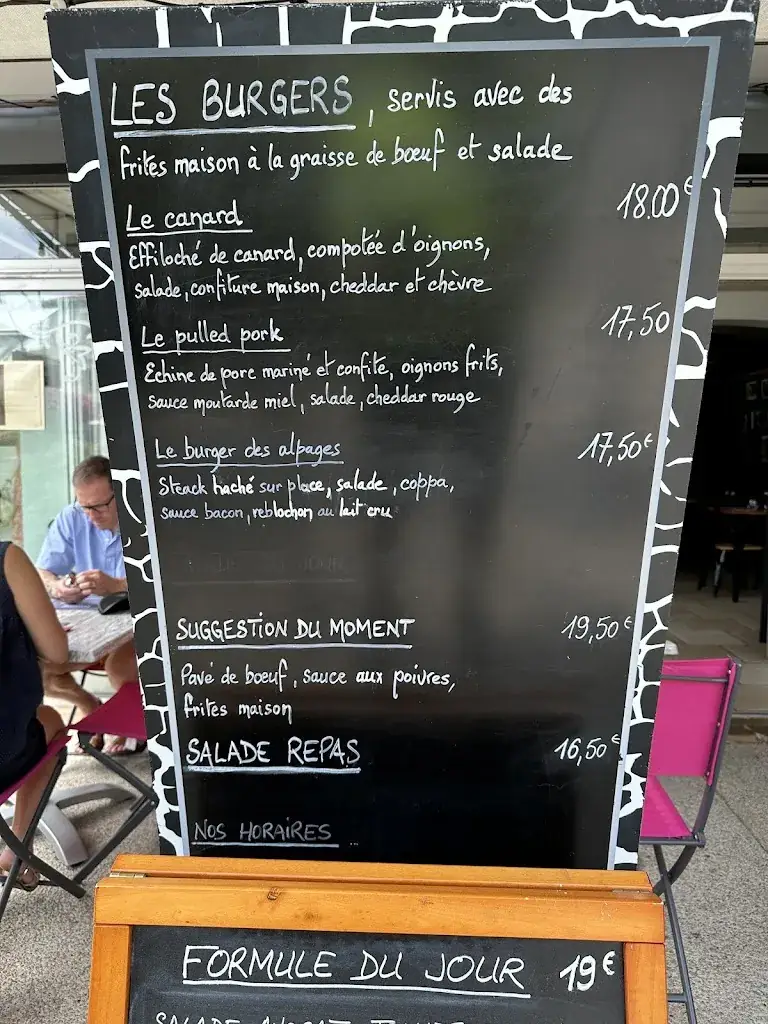 LES BURGERS, servis avec des
frites maison à la graisse de bœuf et salade
Le canard 18.00€
Effiloché de canard, compotée d'oignons,
salade, confiture maison, cheddar et chèvre
Le pulled pork 17,50
Echine de porc mariné et confite, oignons frits,
sauce moutarde miel, salade, cheddar rouge
Le burger des alpages 17,50€
Steack haché sur place, salade, coppa,
sauce bacon, reblochon au lait cru
SUGGESTION DU MOMENT 19,50€
Pavé de bœuf, sauce aux poivres,
frites maison
SALADE REPAS 16,50€
NOS HORAIRES
FORMULE DU JOUR 19€
SALADE